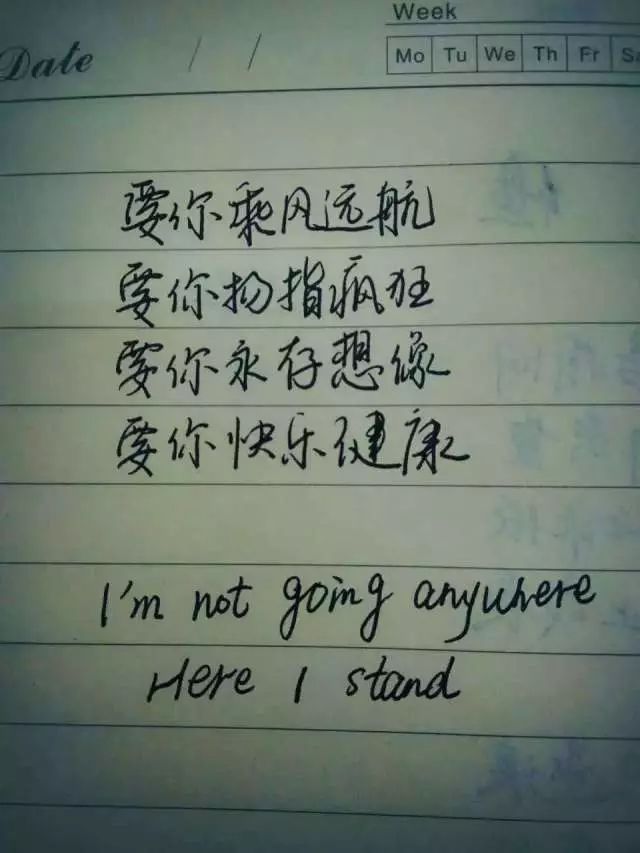 Week
Date / /
Mo Tu We Th Fr Sa
要你乘风远航
要你扬指疯狂
要你永存想像
要你快乐健康
I'm not going anywhere
Here I stand